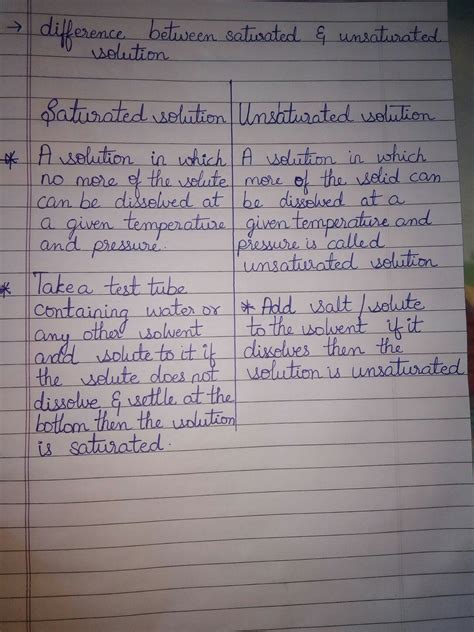 → difference between saturated & unsaturated
solution
Saturated solution
* A solution in which
no more of the solute
can be dissolved at
a given temperature
and pressure.
* Take a test tube
containing water or
any other solvent
and solute to it if
the solute does not
dissolve & settle at the
bottom then the solution
is saturated.
Unsaturated solution
A solution in which
more of the solid can
be dissolved at a
given temperature and
pressure is called
unsaturated solution
* Add salt / solute
to the solvent if it
dissolves then the
solution is unsaturated